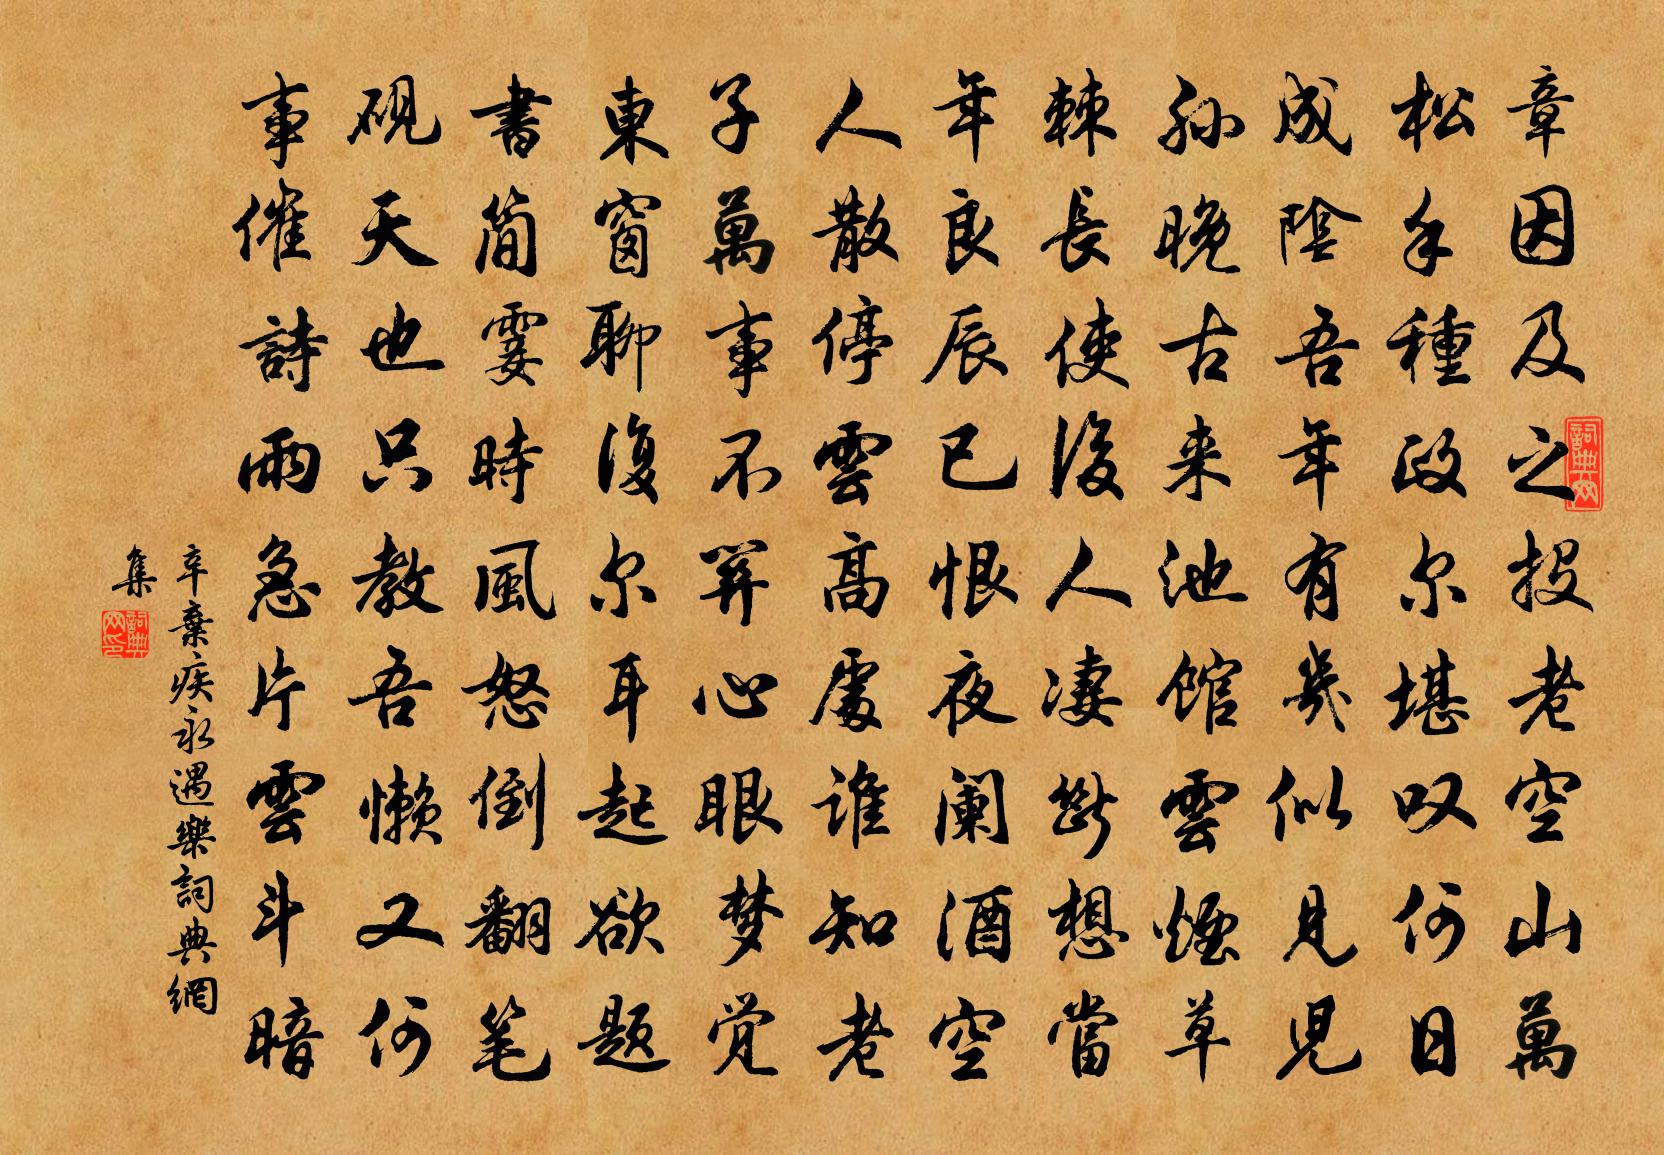 章因及之投老空山萬
松手種政尔堪叹何日
成陰吾年有幾似見児
孙晚古来池馆雲煙草
棘長使後人凄斷想當
年良辰已恨夜阑酒空
人散停雲高處谁知老
子萬事不關心眼梦觉
東窗聊復尔耳起欲题
書簡霎時風怒倒翻笔
硯天也只教吾懒又何
事催詩雨急片雲斗暗
辛棄疾永遇樂詞典網
集
詞典网
詞典网印